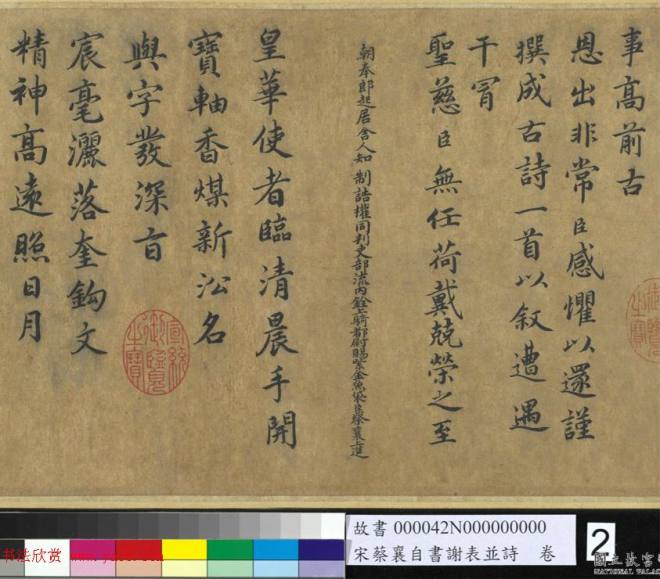 事高前古
恩出非常臣感懼以還謹
撰成古詩一首以叙遭遇
干冒
聖慈臣無任荷戴兢榮之至
朝奉郎起居舍人知制誥權同判吏部流內銓上騎都尉賜紫金魚袋臣蔡襄上進
皇華使者臨清晨手開
寶軸香煤新沿名
與字發深旨
宸毫灑落奎鈎文
精神高遠照日月
宣統御覽之寶
故書 000042N000000000
宋蔡襄自書謝表並詩 卷
2
國立故宮
NATIONAL PALAC
书法欣赏